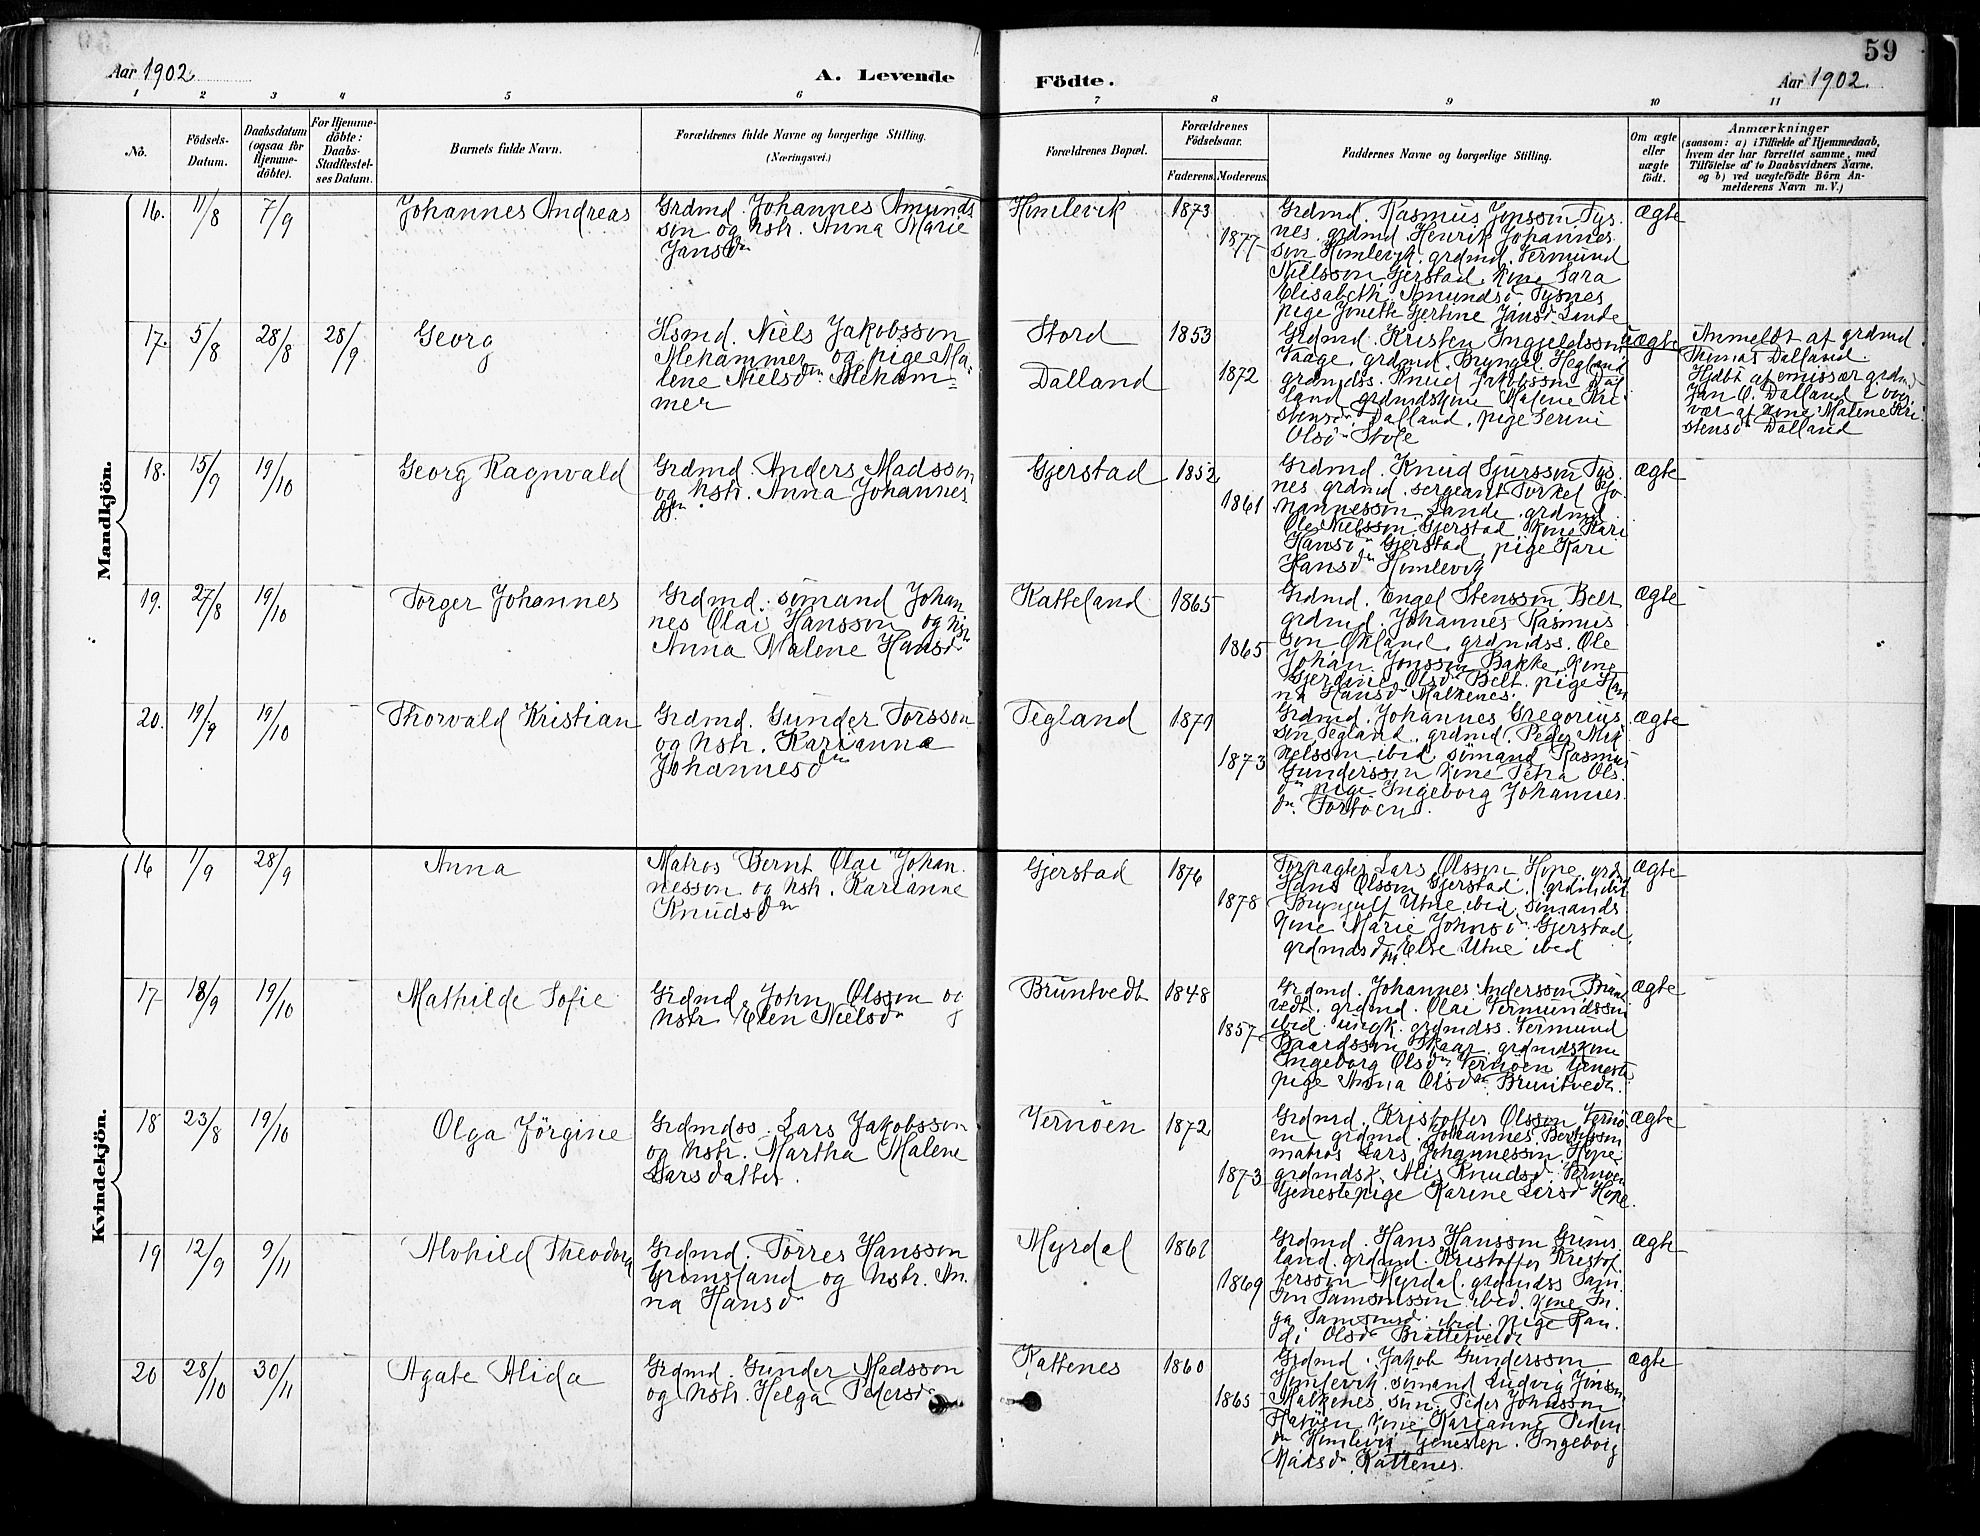 59
Aar 1902
A. Levende
Födte.
Aar 1902.
1 2 3 4 5 6 7 8 9 10 11
No.
Födsels-
Datum.
Daabsdatum
(ogsaa for
Hjemme-
döbte).
For Hjemme-
döbte:
Daabs-
Stadfæstel-
ses Datum.
Barnets fulde Navn.
Forældrenes fulde Navne og borgerlige Stilling.
(Næringsvei.)
Forældrenes Bopæl.
Forældrenes
Födselsaar.
Faderens. Moderens.
Faddernes Navne og borgerlige Stilling.
Om ægte
eller
uægte
födt.
Anmærkninger
(saasom: a) i Tilfælde af Hjemmedaab,
hvem der har forrettet samme, med
Tilföielse af to Daabsvidners Navne,
og b) ved uægtefödte Börn An-
melderens Navn m. V.)
Mandkjön.
16. 11/8 7/9 Johannes Andreas
Grdmd. Johannes Amunds
son og hstr. Anna Marie
Jansdn
Himlevik 1873 1877
Grdmd. Rasmus Jonsson Tys-
nes. grdmd. Henrik Johannes
son Himlevik. grdmd. Vermund
Nilsson Gjerstad. kone Sara
Elisabeth Amundsd. Tysnes
pige Jonette Gjertine Jansd. Lande
ægte
17. 5/8 28/8 28/9 Georg
Hsmd. Niels Jakobsson
Mehammer og pige Ma-
lene Nielsdn Meham-
mer
Stord 1853
Dalland 1872
Grdmd. Kristen Ingjeldsson
Vaage, grdmd. Bryngel Hegland
grdmdss. Knud Jakobsson Dal
land grdmdskone Malene Kri
stensdn Dalland, pige Serine
Olsdn Stole
uægte
Anmeldt af grdmd
Thomas Dalland.
Hjdbt af emissær grdmd
Jan O. Dalland i over
vær af kone Malene Kri
stensdn Dalland
18. 15/9 19/10 Georg Ragnvald
Grdmd. Anders Madsson
og hstr. Anna Johannes
dn.
Gjerstad 1852 1861
Grdmd. Knud Sjursson Tys-
nes grdmd. sergeant Torkel Jo-
hannesson Lande. grdmd.
Ole Nielsson Gjerstad. kone Kari
Hansdn Gjerstad, pige Kari
Hansdn Himlevik
ægte
19. 27/8 19/10 Torger Johannes
Grdmd. sömand Johan
nes Olai Hansson og hstr
Anna Malene Hansdn
Katteland 1865 1865
Grdmd. Engel Stensson Belt
grdmd. Johannes Rasmus
son Økland, grdmdss. Ole
Johan Jonsson Bakke. kone
Gjerdine Olsdn Belt. pige Han
na Hansdn Malkenes.
ægte
20. 19/9 19/10 Thorvald Kristian
Grdmd. Gunder Torsson
og hstr. Karianna
Johannesdn
Tegland 1871 1873
Grdmd. Johannes Gregorius
son Tegland, grdmd. Peder Mik
kelsson ibid sömand Rasmus
Gundersson kone Petra Ols
dn pige Ingeborg Johannes
dn.
ægte
Kvindekjön.
16 1/9 28/9 Anna
Matros Bernt Olai Johan
nesson og hstr. Karianne
Knudsdn
Gjerstad 1876 1878
Forpagter Lars Olsson Hope, grdmd
Hans Olsson Gjerstad,
Bryngulf Utne ibid, sömands
kone Marie Johnsdn Gjerstad,
grdmdsdn. Else Utne ibid
ægte
17 18/9 19/10 Mathilde Sofie
Grdmd. John Olsson og
hstr Elen Nielsdn
Bruntvedt 1848 1857
Grdmd. Johannes Andersson Brunt
vedt. grdmd. Olai Vermundsson
ibid. ungk. grdmdss. Vermund
Baardsson Skaar. grdmdskone
Ingeborg Olsdn Vernöen tjeneste
pige Anna Olsdn Bruntvedt.
ægte
18 23/8 19/10 Olga Jörgine
Grdmdss. Lars Jakobsson
og hstr. Martha Malene
Larsdatter.
Vernöen 1872 1873
Grdmd. Kristoffer Olsson Vernö
en grdmd. Johannes Bertelsson
matros Lars Johannesson Hope
grdmdsk. Alis Knudsd. Vernöen
tjenestepige Karine Larsd Hope.
ægte
19 12/9 9/11 Alvhild Theodora
Grdmd. Törres Hansson
Grimsland og hstr. An
na Hansdn
Myrdal 1861 1869
Grdmd. Hans Hansson Grims
land. grdmd. Kristoffer Kristof
fersson Myrdal. grdmdss Sam
son Samsonsson ibid. kone In
ga Samsonsd ibid. pige Ran
di Olsdn Brattetveit
ægte
20 28/10 30/11 Agate Alida
Grdmd. Gunder Madsson
og hstr. Helga Pedersdn
Kattenes 1860 1865
Grdmd. Jakob Gundersson
Himlevik. sömand Ludvig Jonsson
Malkenes, sön. Peder Johnsson
kone Karianne Peders
dn Himlevik, tjenestep. Ingeborg
Madsdn Kattenes.
ægte